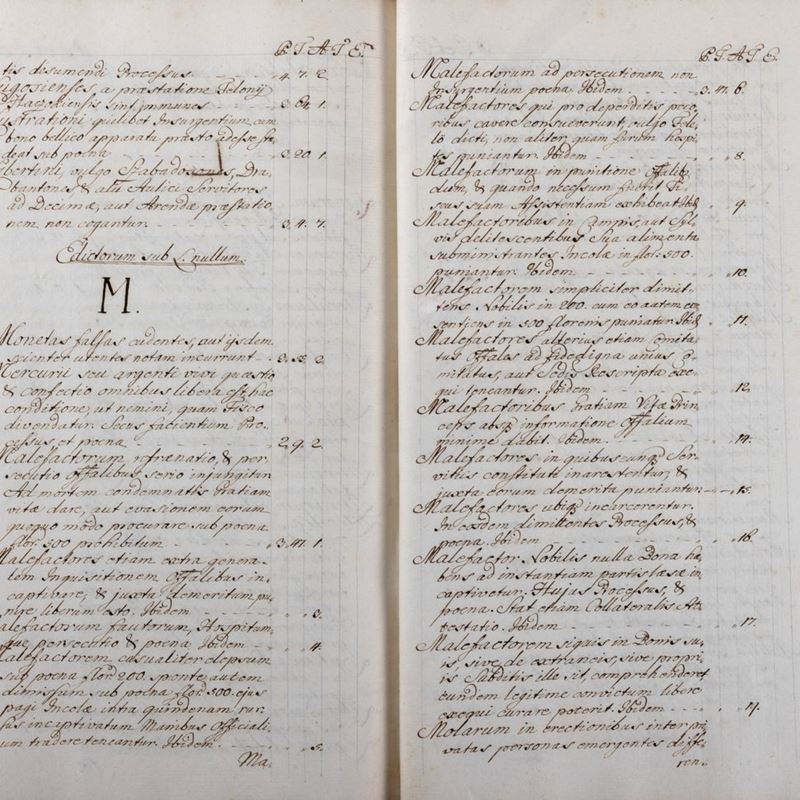 P. T. A T E.
tis desumendi Processus 4. 7. 2.
ugosienses a præstatione Telonij
Hagoviensis sint jmmunes 3. 62. 1.
lustrationi quilibet Insurgentium cum
bono bellico apparatu præsto adesse te,
neat sub poena 3. 20. 1.
ibertini, vulgo Szabadosones, Dra,
bantones, & alii Aulici Servitores
ad Decimæ, aut Arendæ præstatio
nem non cogantur. 3. 4. 7.
Edictorum sub L. nullum.
M.
Monetas falsas cudentes, aut ijsdem
scienter utentes notam incurrunt 3. 2.
Mercurij seu argenti vivi quæstio
& confectio omnibus libera est hac
conditione, ut nemini, quam Fisco
divendatur. Secus facientium Pro,
cessus et poena 2. 9. 2.
Malefactorum refrænatio, & per
secutio offalibus serio injungitur
Ad mortem condemnatis Gratiam
vitæ dare, aut evasionem eorum
quoquo modo procurare sub poena
flor. 500 prohibitum 3. 47. 1.
Malefactores etiam extra genera-
lem Inquisitionem Offalibus in,
captivare, & juxta demeritum pu,
nire liberum esto. Ibidem 3.
alefactorum fautorum, Hospitum,
que persecutio & poena Ibidem 4.
alefactorem casualiter elapsum
sub poena flor. 200. sponte autem
dimissum sub poena flor. 500. ejus
pagi Incolæ intra quendenam rur,
sus incaptivatum Manibus Officiali,
um tradere teneantur. Ibidem. 5.
Ma.
P. T. A T E.
Malefactorum ad persecutionem non
Insurgentium poena Ibidem. 3. 47. 6.
Malefactores qui pro deperditis peco,
ribus cavere consueverunt, vulgo Tol,
lo dicti, non aliter quam furum hospi,
tes puniantur. Ibidem 8.
Malefactorum in punitione Offalib,
dum, & quando necessum fuerit Fi,
scus suam Assistentiam exhibeat Ibid. 9.
Malefactoribus in Campis, aut Syl,
vis delitescentibus Sua alimenta
subministrantes Incolæ in flor. 500.
puniantur. Ibidem 10.
Malefactorem simpliciter dimit,
tens Nobilis in 200. cum eo autem con
sentiens in 500 florenis puniatur Ibid. 11.
Malefactores alterius etiam Comita,
tus Offales ad fidedigna unius Co,
mitatus, aut Sedis Rescripta exe,
qui teneantur. Ibidem 12.
Malefactoribus Gratiam Vitæ Prin
ceps absq informatione Offalium
minime dabit. Ibidem. 14.
Malefactores in quibuscunq Ser,
vitiis constituti inarestentur, &
juxta eorum demerita puniantur 15.
Malefactores ubiq incarcerentur.
In eosdem dimittentes Processus, &
poena. Ibidem 16.
Malefactor Nobilis nulla Bona ha
bens ad instantiam partis læsæ in
captivetur. Hujus Processus, &
poena. Stat etiam Collateralis At,
testatio. Ibidem 17.
Malefactorem siquis in Bonis su,
is, sive de extraneis, sive propri,
is Subditis ille sit, comprehenderet
eundem legitime convictum libere
exequi curare poterit. Ibidem 19.
Molarum in erectionibus inter pri
vatas personas emergentes diffe,
ren.